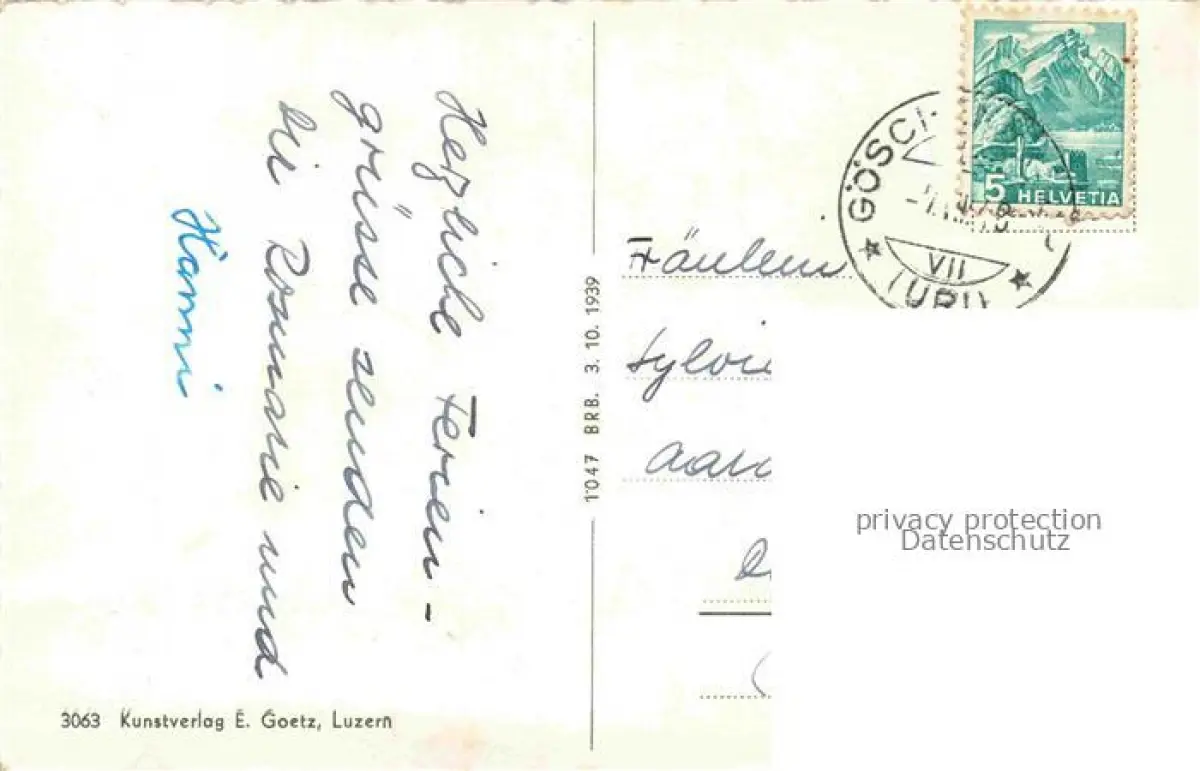 Herzliche Ferien-
grüsse senden
dir Rosmarie und
Hanni
3063 Kunstverlag E. Goetz, Luzern
1047 BRB. 3. 10. 1939
5 HELVETIA
GÖSCH
VII
(URI)
Fräulein
Sylvie
privacy protection
Datenschutz